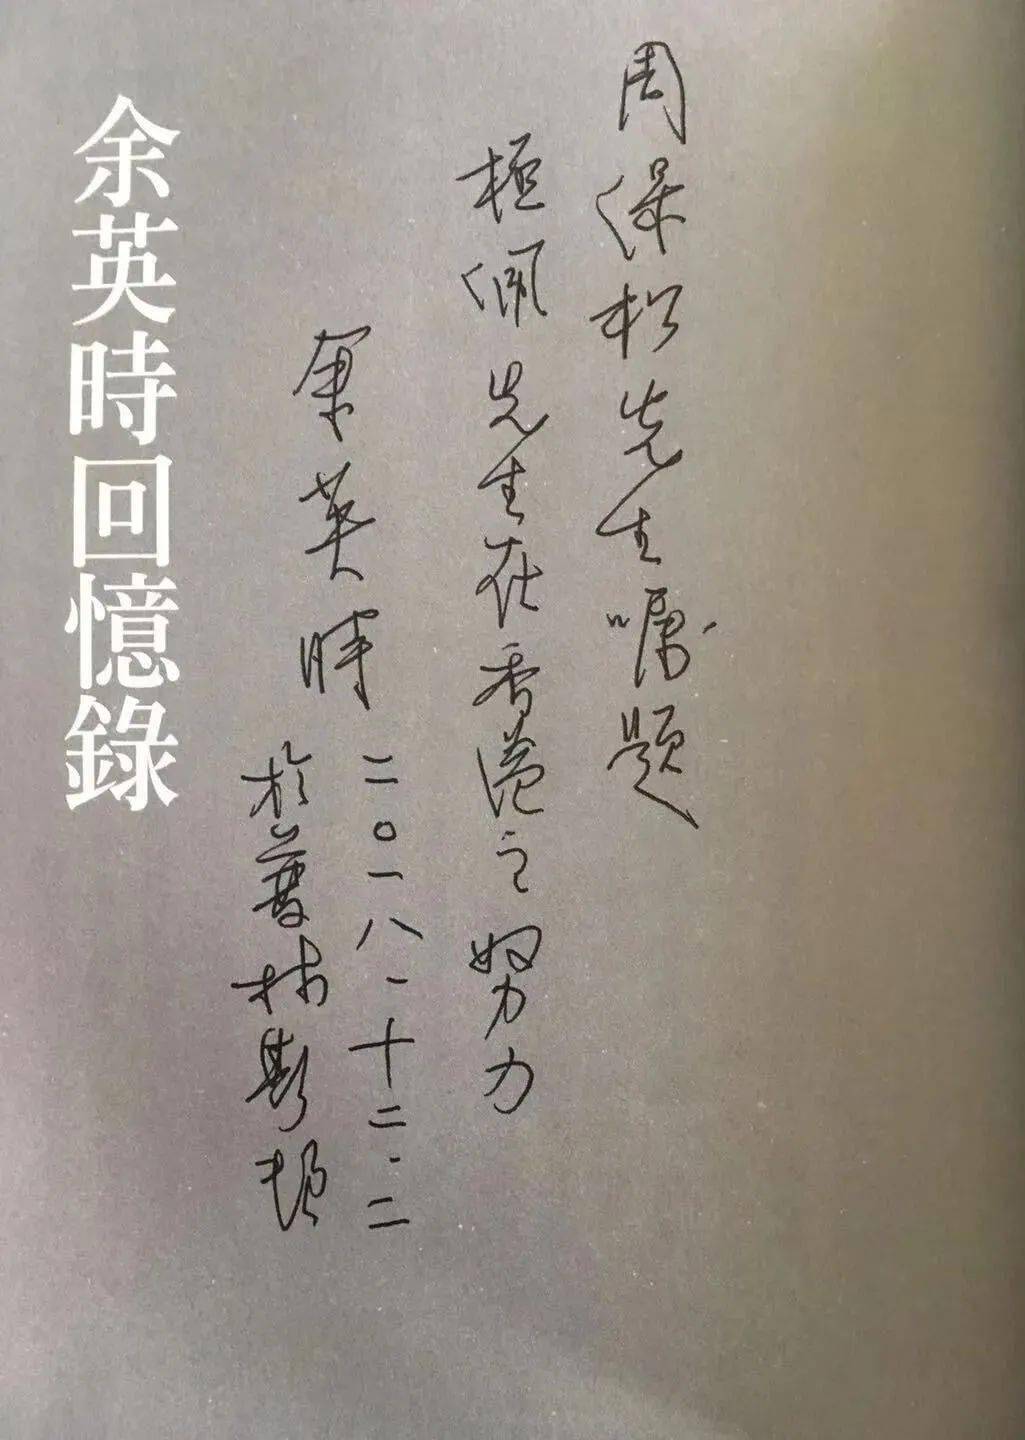 周保松先生囑題
極佩先生在香港之努力
余英時
二〇一八・十二・二
於普林斯頓
余英時回憶錄